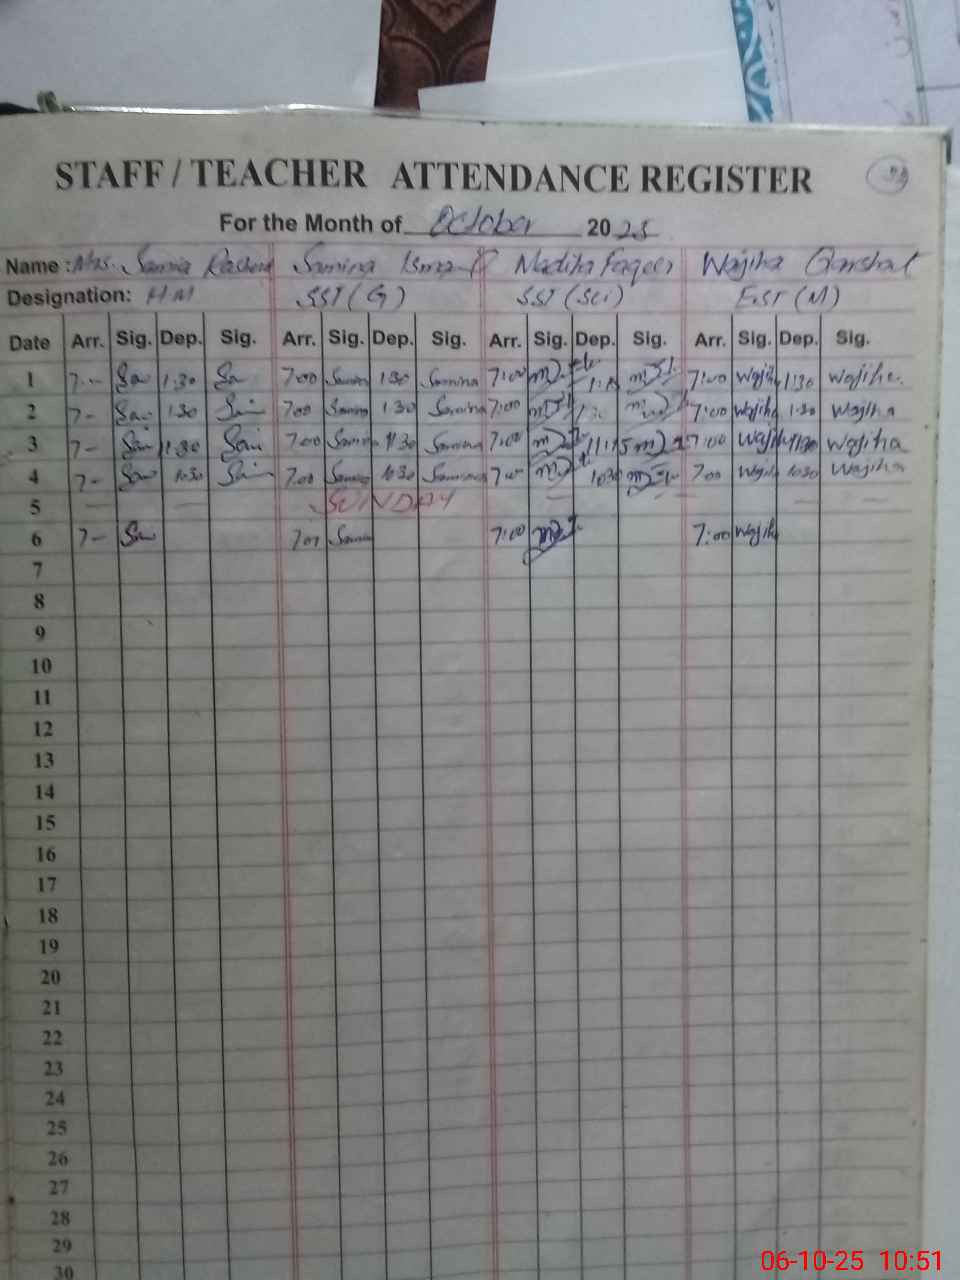 STAFF / TEACHER ATTENDANCE REGISTER
For the Month of October 2025
Name : Mrs. Samia Rasheed Samina Ismail Nadiha Faqeer Wajiha
Designation: HM SST (G) SST (Sci) EST (M)
Date Arr. Sig. Dep. Sig. Arr. Sig. Dep. Sig. Arr. Sig. Dep. Sig. Arr. Sig. Dep. Sig.
1 7-- 1:30 7:00 Samina 1:30 Samina 7:00 7:00 Wajiha 1:30 Wajiha
2 7- 1:30 7:00 Samina 1:30 Samina 7:00 7:00 Wajiha 1:30 Wajiha
3 7- 11:30 7:00 Samina 11:30 Samina 7:00 11:15 7:00 Wajiha 11:30 Wajiha
4 7- 10:30 7:00 Samina 10:30 Samina 7:00 10:30 7:00 Wajiha 10:30 Wajiha
5 SUNDAY
6 7- 7:00 7:00 Wajiha
7
8
9
10
11
12
13
14
15
16
17
18
19
20
21
22
23
24
25
26
27
28
29
30
06-10-25 10:51